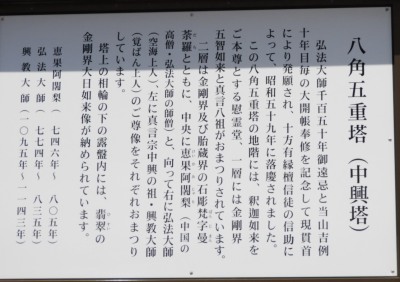 八角五重塔(中興塔)
弘法大師千百五十年御遠忌と当山吉例
十年目毎の大開帳奉修を記念して現貫首
により発願され、十方有縁檀信徒の信助に
よって、昭和五十九年に落慶されました。
この八角五重塔の地階には、釈迦如来を
ご本尊とする慰霊堂、一層には金剛界
五智如来と真言八祖がおまつりされています。
二層は金剛界及び胎蔵界の石彫梵字曼
荼羅とともに、中央に恵果阿闍梨(中国の
高僧・弘法大師の師僧)と、向って右に弘法大師
(空海上人)、左に真言宗中興の祖・興教大師
(覚ばん上人)のご尊像をそれぞれおまつり
しています。
塔上の相輪の下の露盤内には、翡翠の
金剛界大日如来像が納められています。
恵果阿闍梨(七四六年~八〇五年)
弘法大師(七七四年~八三五年)
興教大師(一〇九五年~一一四三年)